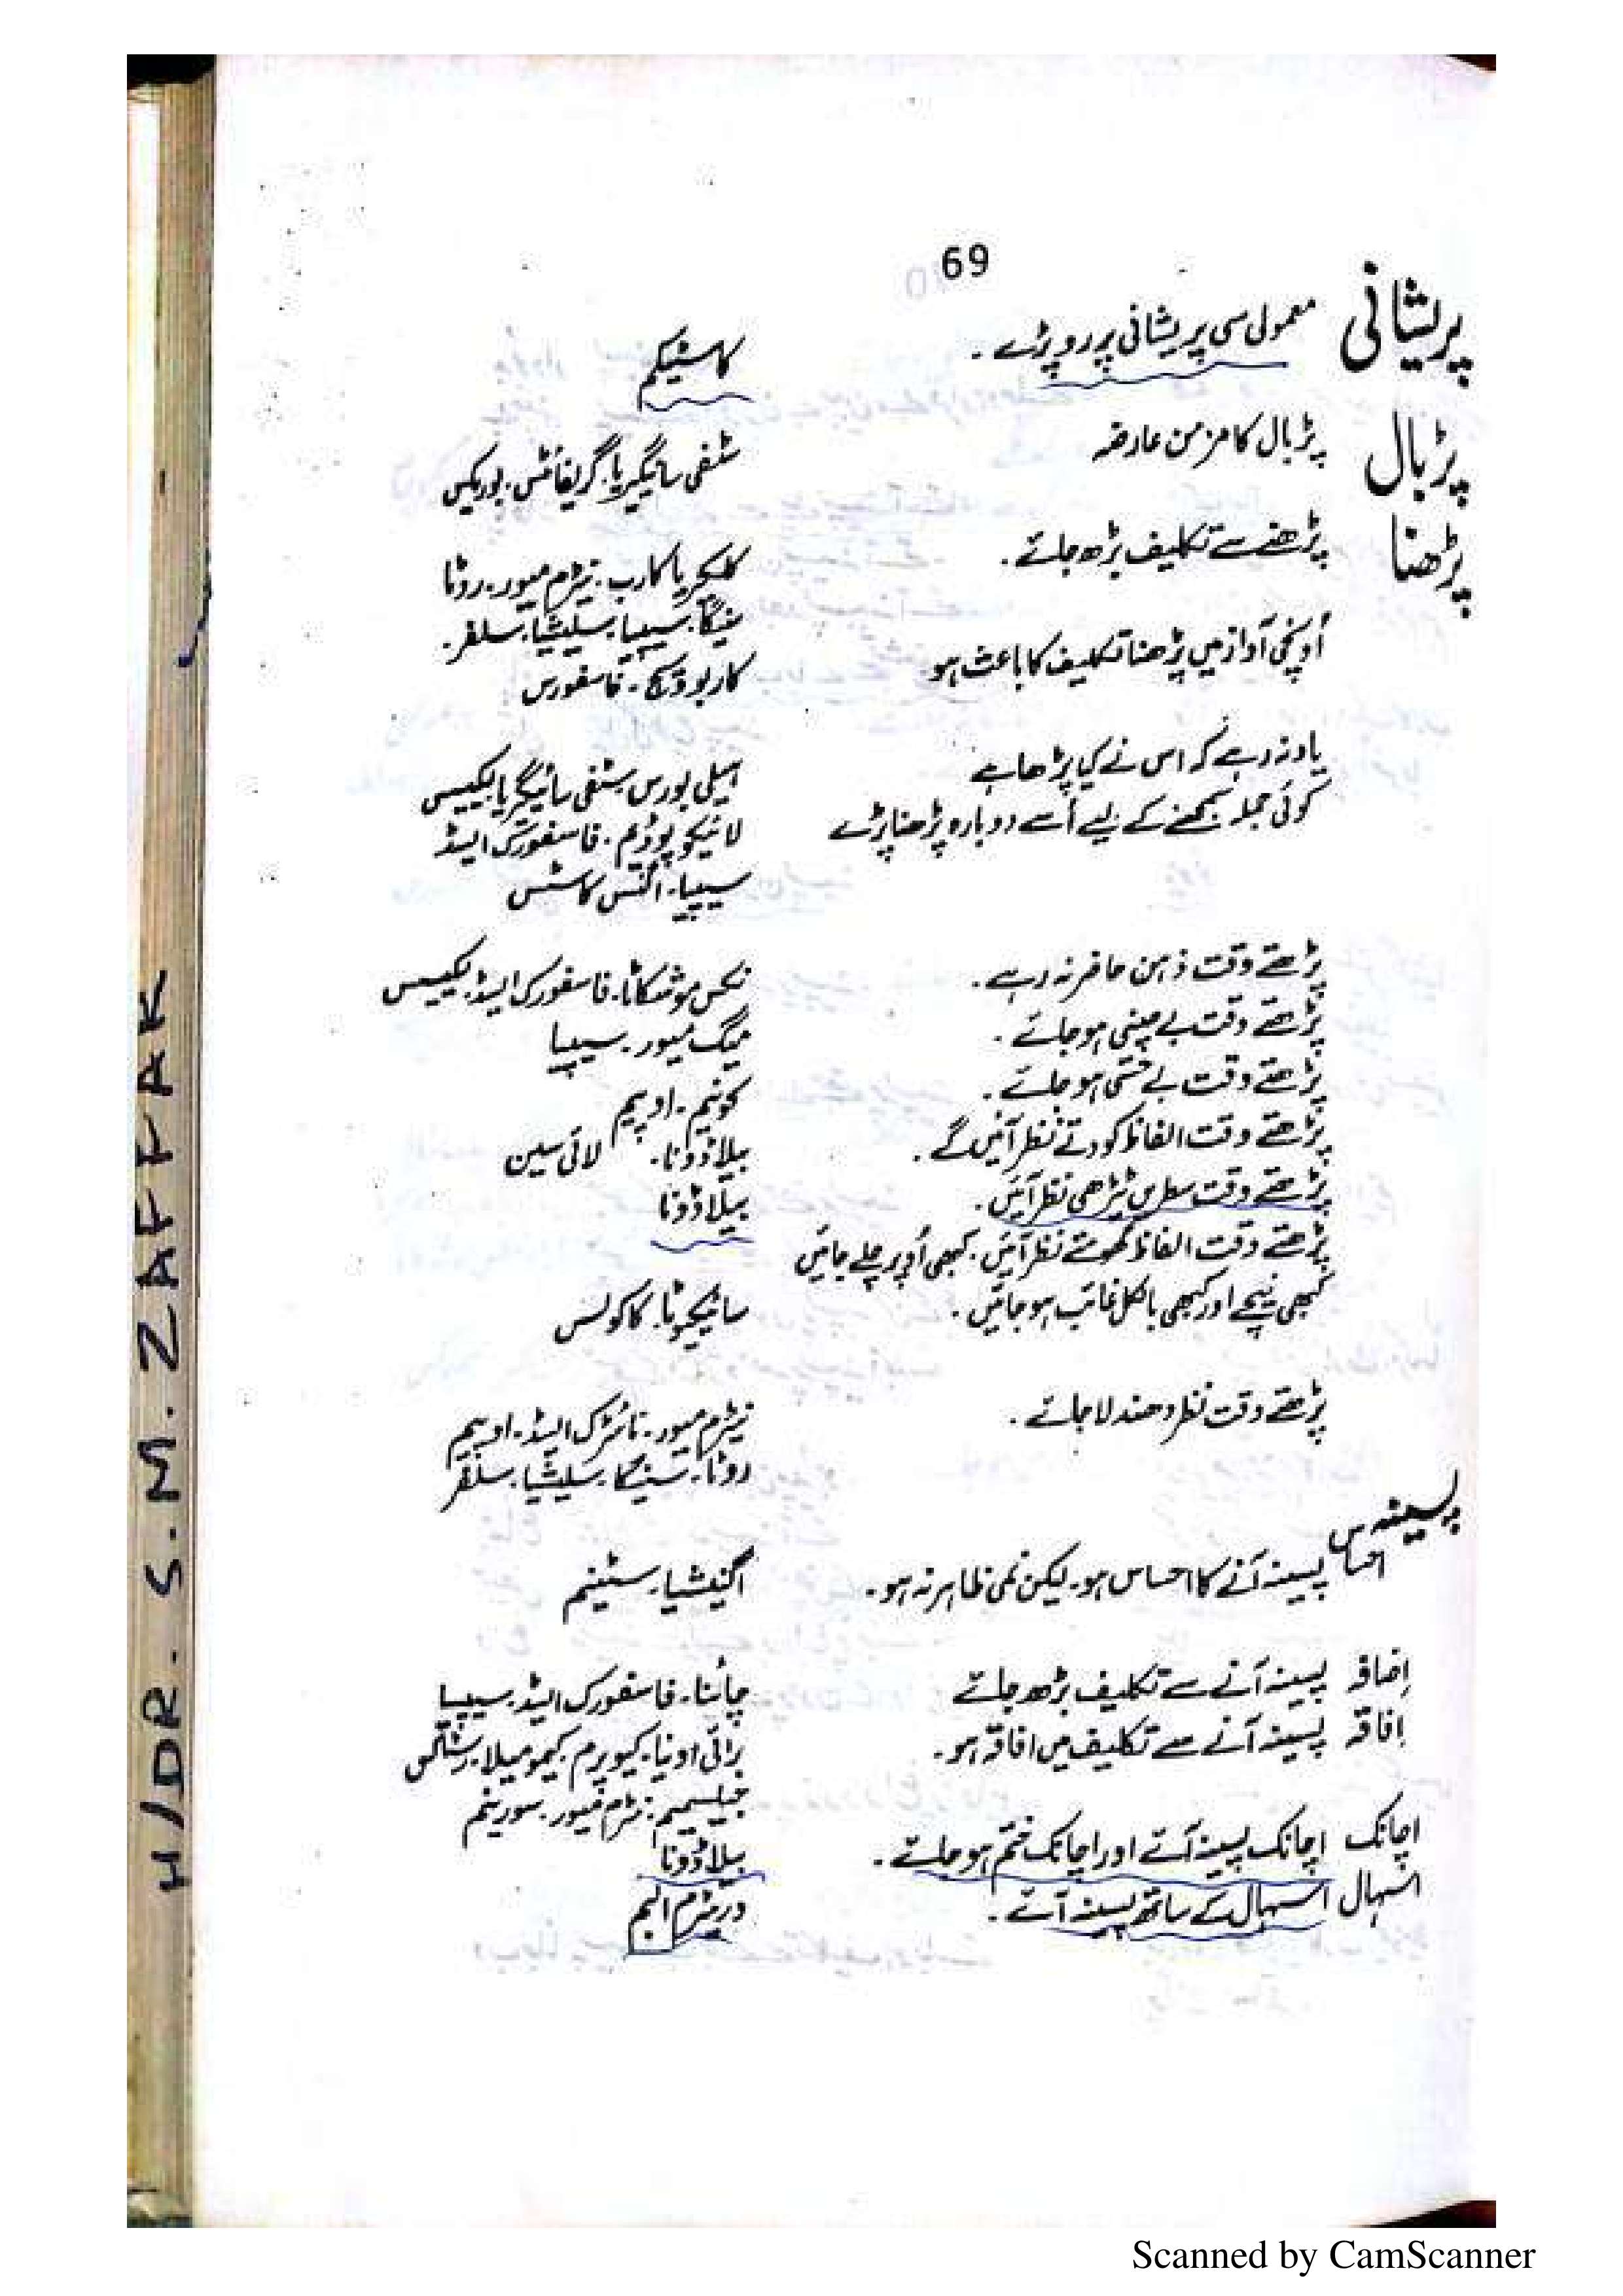 69
پریشانی معمولی سی پریشانی پر رو پڑے۔ کاسٹیکم
پڑبال پڑبال کا مزمن عارضہ سٹفی سائیگریا۔ گریفائٹس۔ بوریکس
پڑھنا پڑھنے سے تکلیف بڑھ جائے۔ کلکیریا کارب۔ نیٹرم میور۔ روٹا
سینگا۔ سیپیا۔ سلیشیا۔ سلفر۔
اُونچی آواز میں پڑھنا تکلیف کا باعث ہو کاربو ویج۔ فاسفورس
یاد نہ رہے کہ اس نے کیا پڑھا ہے ۔ سٹفی سائیگریا۔ لیکیسس
کوئی جملہ سمجھنے کے لیے اُسے دوبارہ پڑھنا پڑے لائیکوپوڈیم۔ فاسفورک ایسڈ
سیپیا۔ اگنس کاسٹس
پڑھتے وقت ذہن حاضر نہ رہے۔ نکس موشکاٹا۔ فاسفورک ایسڈ۔ لیکیسس
پڑھتے وقت بے چینی ہو جائے۔ میگ میور۔ سیپیا
پڑھتے وقت ہو جائے۔ کونیم۔ اوپیم
پڑھتے وقت الفاظ کودتے نظر آئیں گے۔ بیلاڈونا۔ لائی سین
پڑھتے وقت سطریں ٹیڑھی نظر آئیں۔ بیلاڈونا
پڑھتے وقت الفاظ گھومتے نظر آئیں۔ کبھی اُوپر چلے جائیں
کبھی نیچے اور کبھی بالکل غائب ہو جائیں۔ سائیکیوٹا۔ کاکولس
پڑھتے وقت نظر دھندلا جائے۔ نیٹرم میور۔ نائٹرک ایسڈ۔ اوپیم
روٹا۔ سینگا۔ سلیشیا۔ سلفر
پسینہ
احساس پسینہ آنے کا احساس ہو۔ لیکن نمی ظاہر نہ ہو۔ اگنیشیا۔ سٹینم
اِضافہ پسینہ آنے سے تکلیف بڑھ جائے چائنا۔ فاسفورک ایسڈ۔ سیپیا
اِفاقہ پسینہ آنے سے تکلیف میں افاقہ ہو۔ برائی اونیا۔ کیوپرم۔ کیمومیلا۔ رسٹاکس
جیلسیمیم۔ نیٹرم میور۔ سورینم
اچانک اچانک پسینہ آئے اور اچانک ختم ہو جائے۔ بیلاڈونا
اسہال اسہال کے ساتھ پسینہ آئے۔ وریٹرم البم
H/DR. S.M. ZAFFAR
Scanned by CamScanner